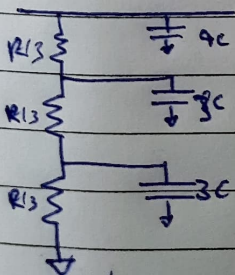 R/3
9C
R/3
3C
R/3
3C